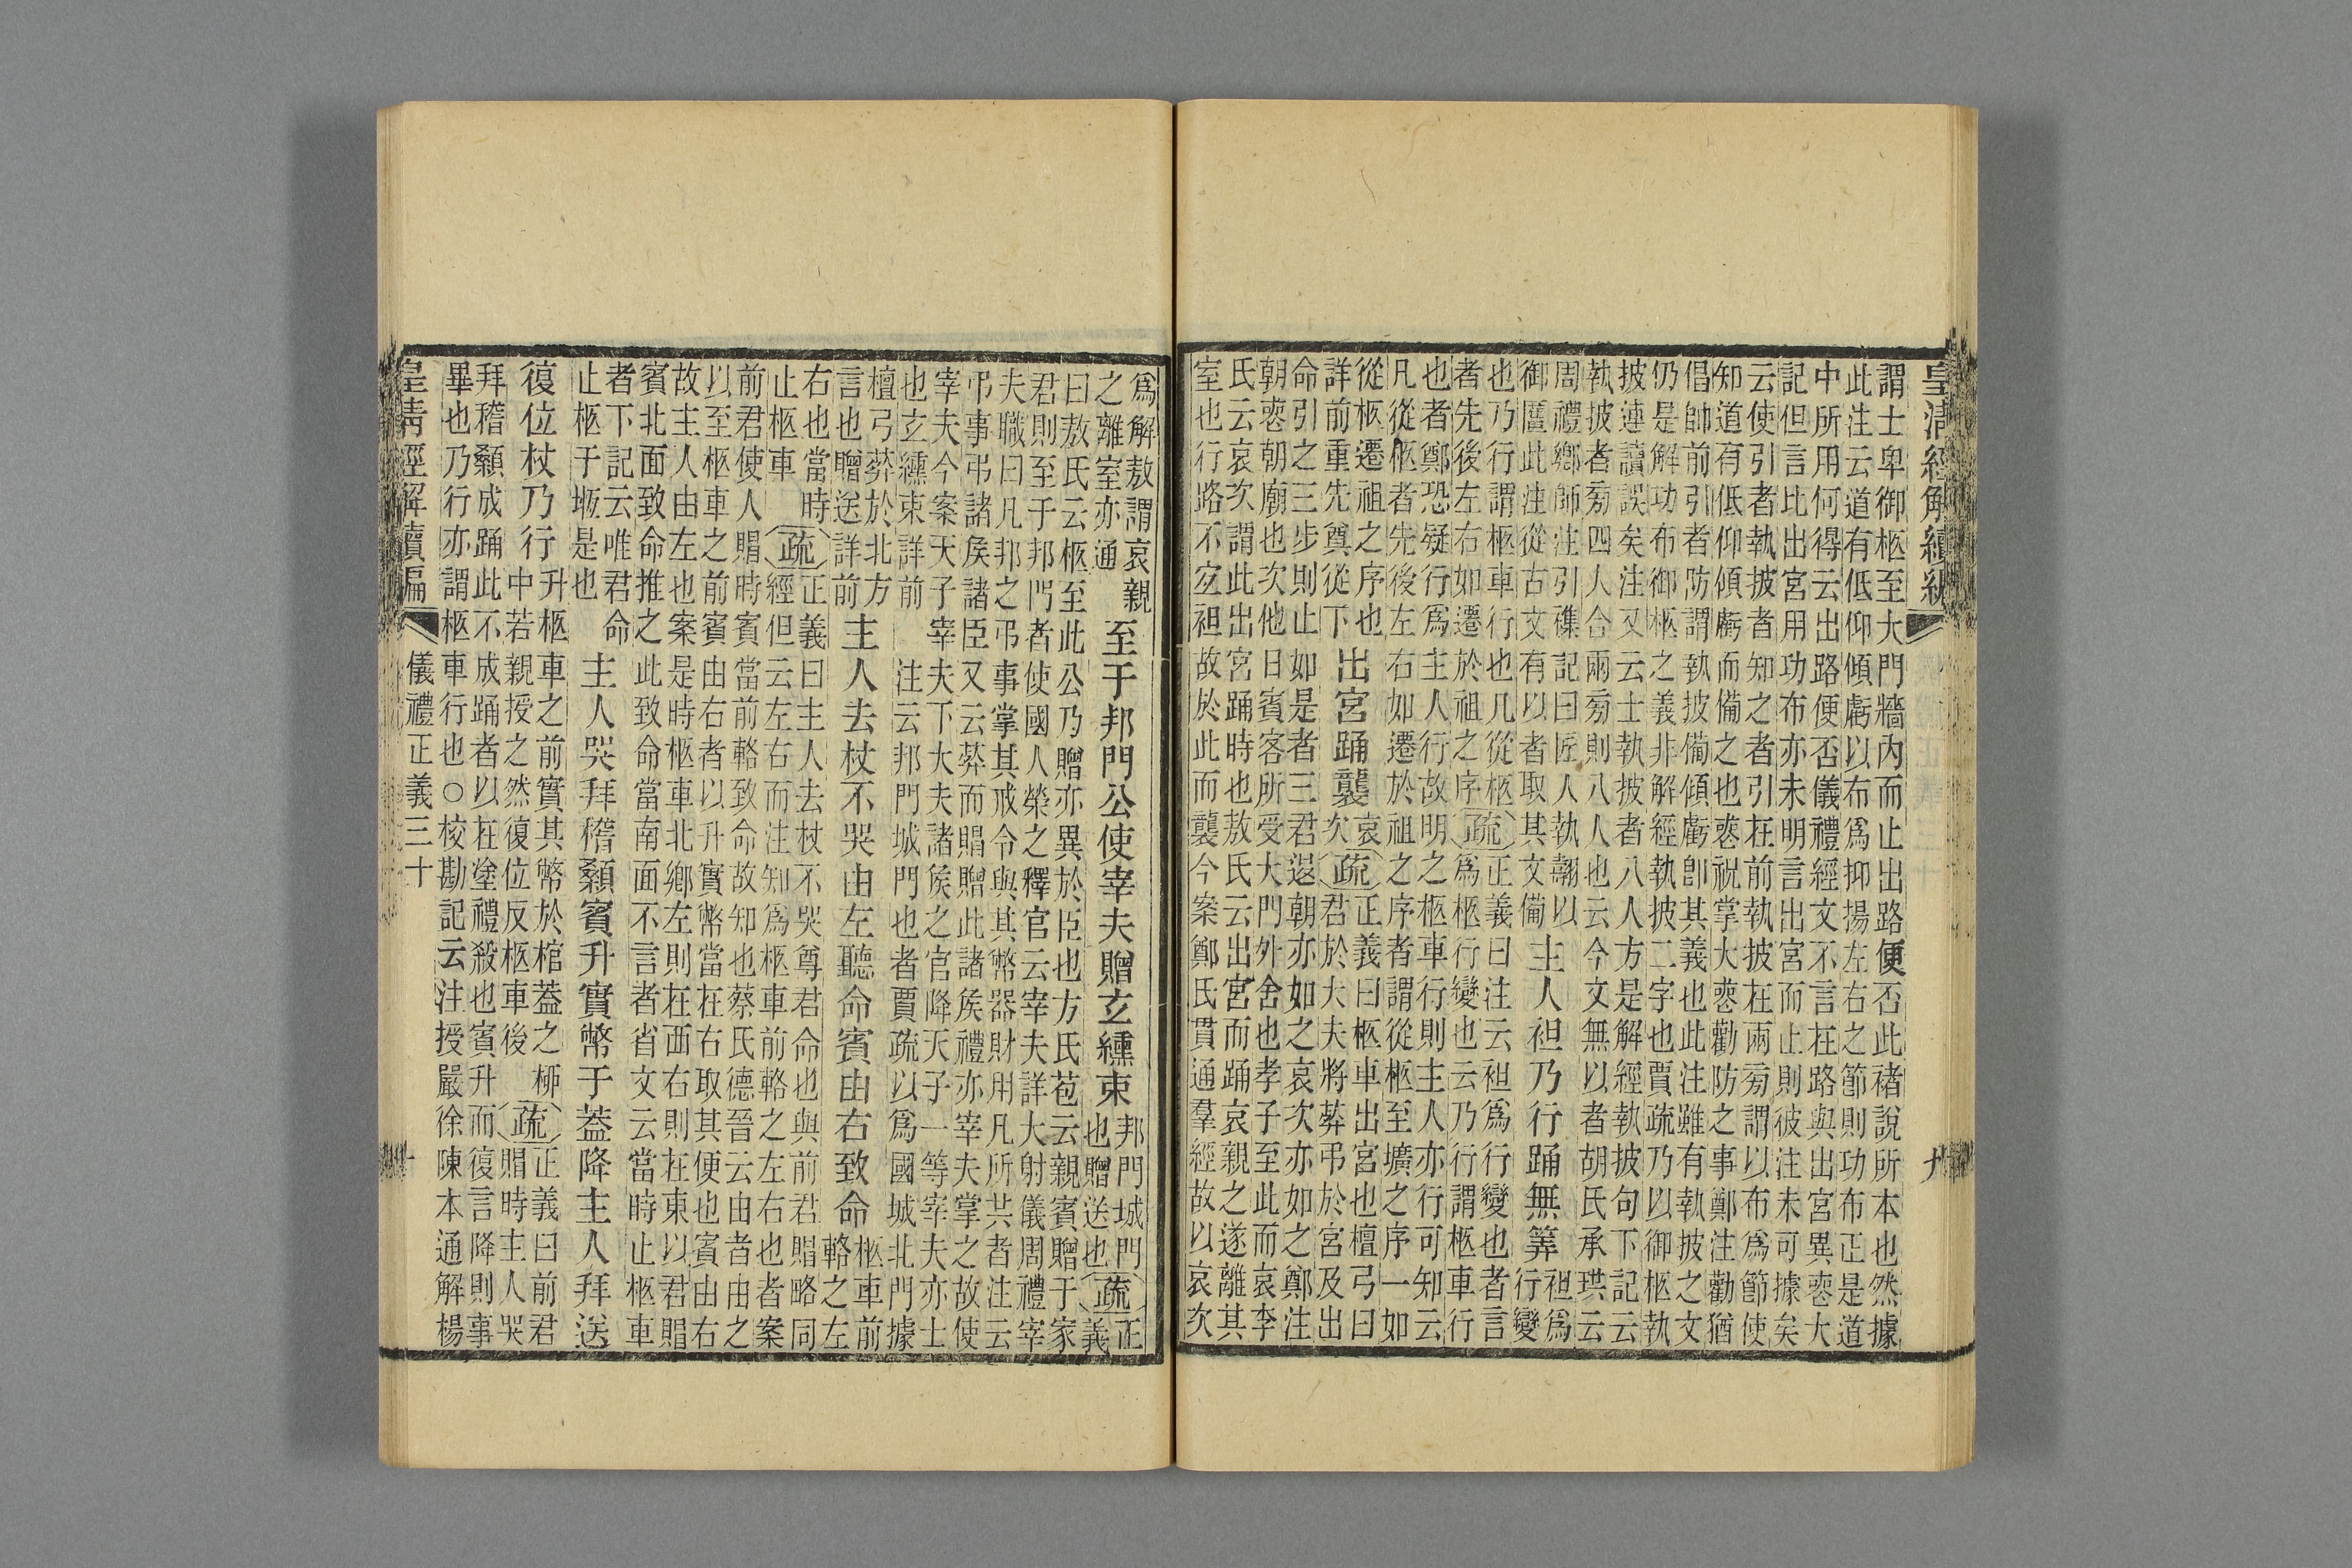 皇清經解續編
九
謂士卑御柩至大門牆內而止出路便否此褚說所本也然據
此注云道有低仰傾虧以布爲抑揚左右之節則功布正是道
中所用何得云出路便否儀禮經文不言在路與出宮異喪大
記但言比出宮用功布亦未明言出宮而止則彼注未可據矣
云使引者執披者知之者引在前執披在兩旁謂以布爲節使
知道有低仰傾虧而備之也喪祝掌大喪勸防之事鄭注勸猶
倡帥前引者防謂執披備傾虧卽其義也此注雖有執披之文
仍是解功布御柩之義非解經執披二字也賈疏乃以御柩執
披連讀誤矣注又云士執披者八人方是解經執披句下記云
執披者旁四人合兩旁則八人也云今文無以者胡氏承珙云
周禮鄉師注引襍記曰匠人執翿以
御匶此注從古文有以者取其文備
主人袒乃行踊無筭
袒爲
行變
也乃行謂柩車行也凡從柩
者先後左右如遷於祖之序
疏
正義曰注云袒爲行變也者言
爲柩行變也云乃行謂柩車行
也者鄭恐疑行爲主人行故明之柩車行則主人亦行可知云
凡從柩者先後左右如遷於祖之序者謂從柩至壙之序一如
從柩遷祖之序也
詳前重先奠從下
出宮踊襲
哀
次
疏
正義曰柩車出宮也檀弓曰
君於大夫將葬弔於宮及出
命引之三步則止如是者三君退朝亦如之哀次亦如之鄭注
朝喪朝廟也次他日賓客所受大門外舍也孝子至此而哀李
氏云哀次謂此出宮踊時也敖氏云出宮而踊哀親之遂離其
室也行路不宜袒故於此而襲今案鄭氏貫通羣經故以哀次
爲解敖謂哀親
之離室亦通
至于邦門公使宰夫贈玄纁束
邦門城門
也贈送也
疏
正
義
曰敖氏云柩至此公乃贈亦異於臣也方氏苞云親賓贈于家
君則至于邦門者使國人榮之釋官云宰夫詳大射儀周禮宰
夫職曰凡邦之弔事掌其戒令與其幣器財用凡所共者注云
弔事弔諸侯諸臣又云葬而賵贈此諸侯禮亦宰夫掌之故使
宰夫今案天子宰夫下大夫諸侯之官降天子一等宰夫亦士
也玄纁束詳前 注云邦門城門也者賈疏以爲國城北門據
檀弓葬於北方
言也贈送詳前
主人去杖不哭由左聽命賓由右致命
柩車前
輅之左
右也當時
止柩車
疏
正義曰主人去杖不哭尊君命也與前君賵略同
經但云左右而注知爲柩車前輅之左右也者案
前君使人賵時賓當前輅致命故知也蔡氏德晉云由者由之
以至柩車之前賓由右者以升實幣當在右取其便也賓由右
故主人由左也案是時柩車北鄉左則在西右則在東以君賵
賓北面致命推之此致命當南面不言者省文云當時止柩車
者下記云唯君命
止柩于堩是也
主人哭拜稽顙賓升實幣于蓋降主人拜送
復位杖乃行
升柩車之前實其幣於棺蓋之柳
中若親授之然復位反柩車後
疏
正義曰前君
賵時主人哭
拜稽顙成踊此不成踊者以在塗禮殺也賓升而復言降則事
畢也乃行亦謂柩車行也○校勘記云注授嚴徐陳本通解楊
皇清經解續編
儀禮正義三十